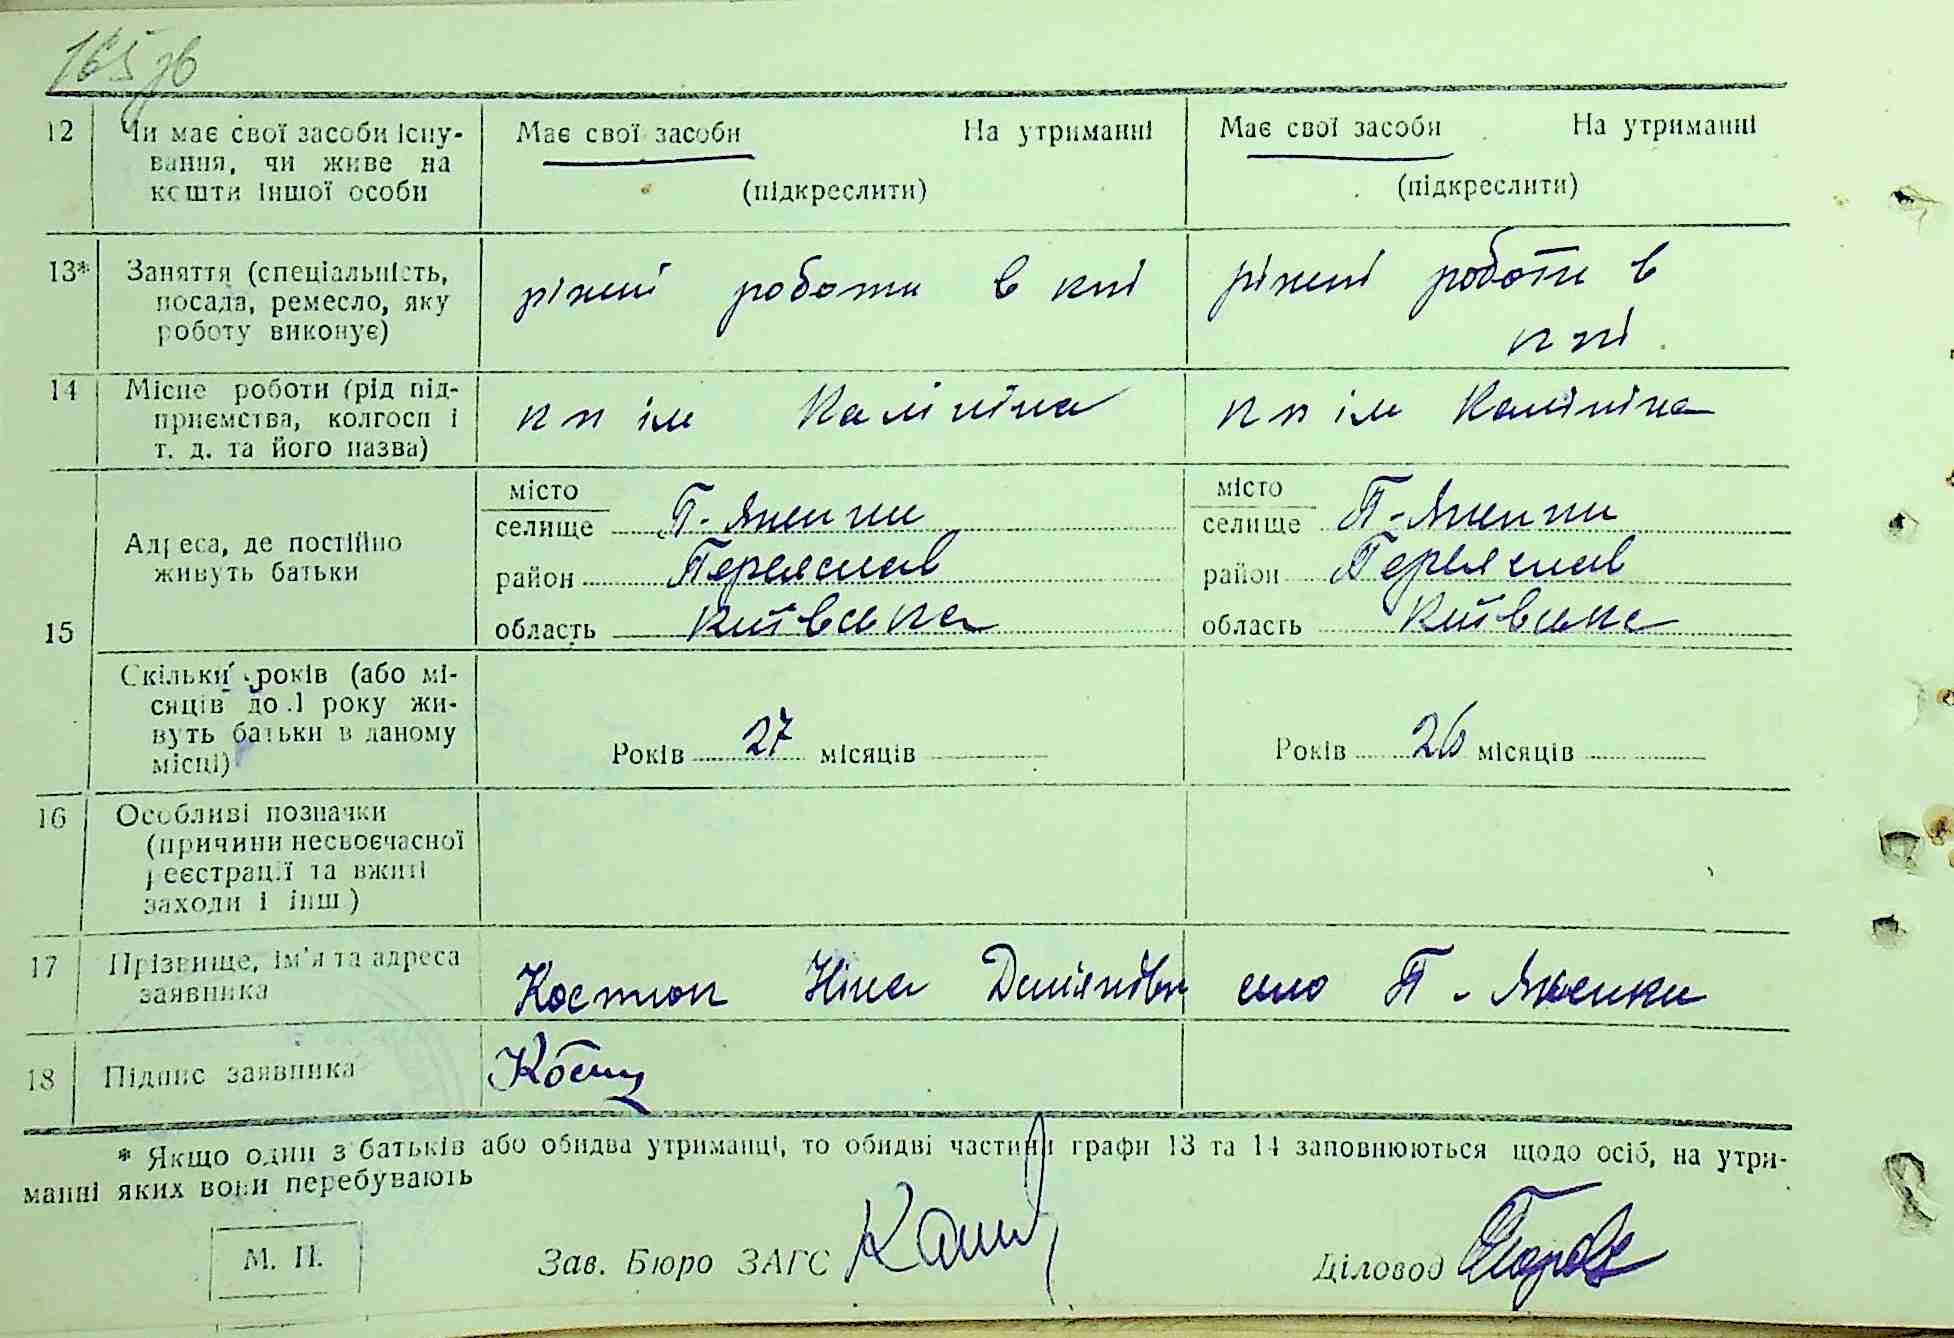 165 зв
12 Чи має свої засоби існу-
вання, чи живе на
кошти іншої особи
Має свої засоби На утриманні
(підкреслити)
Має свої засоби На утриманні
(підкреслити)
13* Заняття (спеціальність,
посада, ремесло, яку
роботу виконує)
ріжні роботи в кпі
ріжні роботи в
кпі
14 Місце роботи (рід під-
приємства, колгосп і
т. д. та його назва)
кп ім Калініна
кп ім Калініна
15
Адреса, де постійно
живуть батьки
місто
селище П-Яненки
район Переяслав
область Київська
місто
селище П-Яненки
район Переяслав
область Київська
Скільки років (або мі-
сяців до 1 року жи-
вуть батьки в даному
місці)
Років 27 місяців
Років 26 місяців
16 Особливі позначки
(причини несвоєчасної
реєстрації та вжиті
заходи і інш)
17 Прізвище, ім'я та адреса
заявника
Костюк Ніна село П-Яненки
18 Підпис заявника
* Якщо один з батьків або обидва утриманці, то обидві частини графи 13 та 14 заповнюються щодо осіб, на утри-
манні яких вони перебувають
М. П.
Зав. Бюро ЗАГС
Діловод